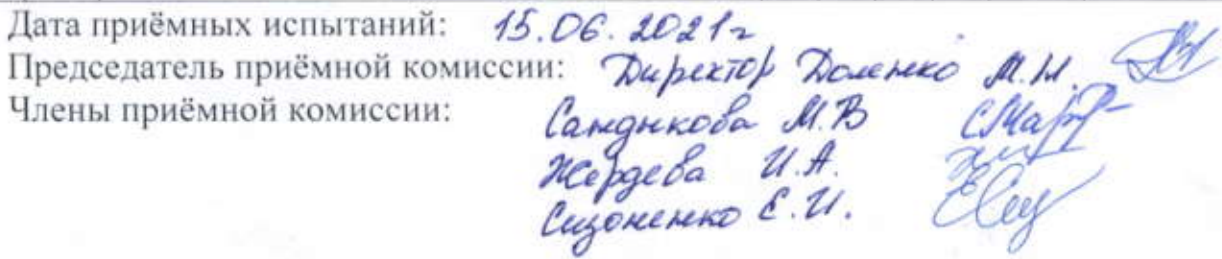 Дата приёмных испытаний: 15.06.2021г
Председатель приёмной комиссии: Директор Доленко М.И.
Члены приёмной комиссии:
М.В
Жердева И.А.
Сизоненко Е.И.